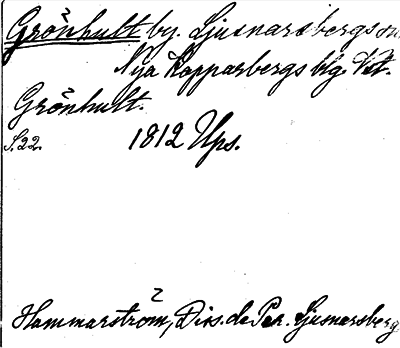 Grönhult by. Ljusnarsbergs sn.
Nya Kopparbergs blg. Vst.
Grönhult.
S.22. 1812 Ups.
Hammarström, Diss. de Par. Ljusnarsberg